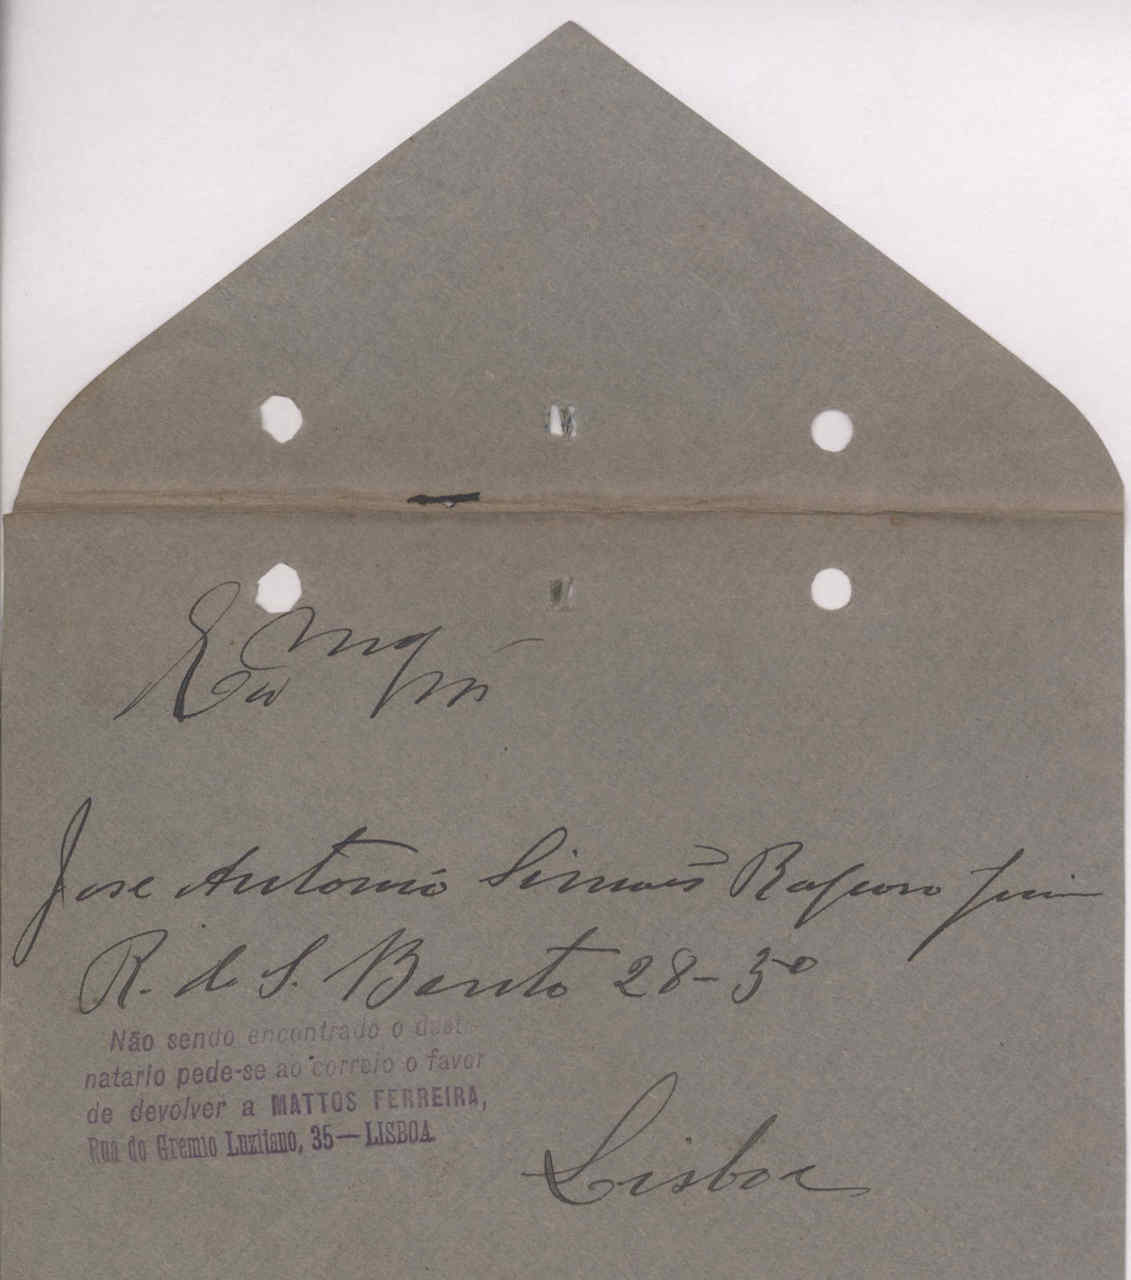 Exmo Snr
José Antonio Simões Raposo Junr
R. de S. Bento 28-3º
Não sendo encontrado o desti-
natario pede-se ao correio o favor
de devolver a MATTOS FERREIRA,
Rua do Gremio Luzitano, 35—LISBOA.
Lisboa